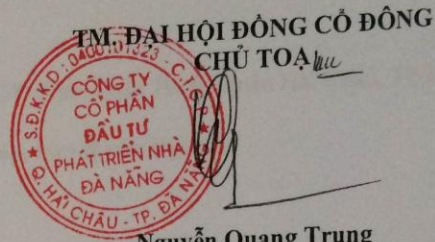 TM. ĐẠI HỘI ĐỒNG CỔ ĐÔNG
CHỦ TOẠ
S.Đ.K.K.D: 0400101323 - C.T.C.P
CÔNG TY
CỔ PHẦN
ĐẦU TƯ
PHÁT TRIỂN NHÀ
ĐÀ NẴNG
Q. HẢI CHÂU - TP. ĐÀ NẴNG
Nguyễn Quang Trung